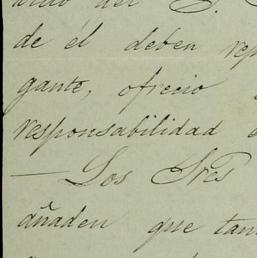 del S.
de él deben rep
gante, ofrecio
responsabilidad
— Los Sres
añaden que tam